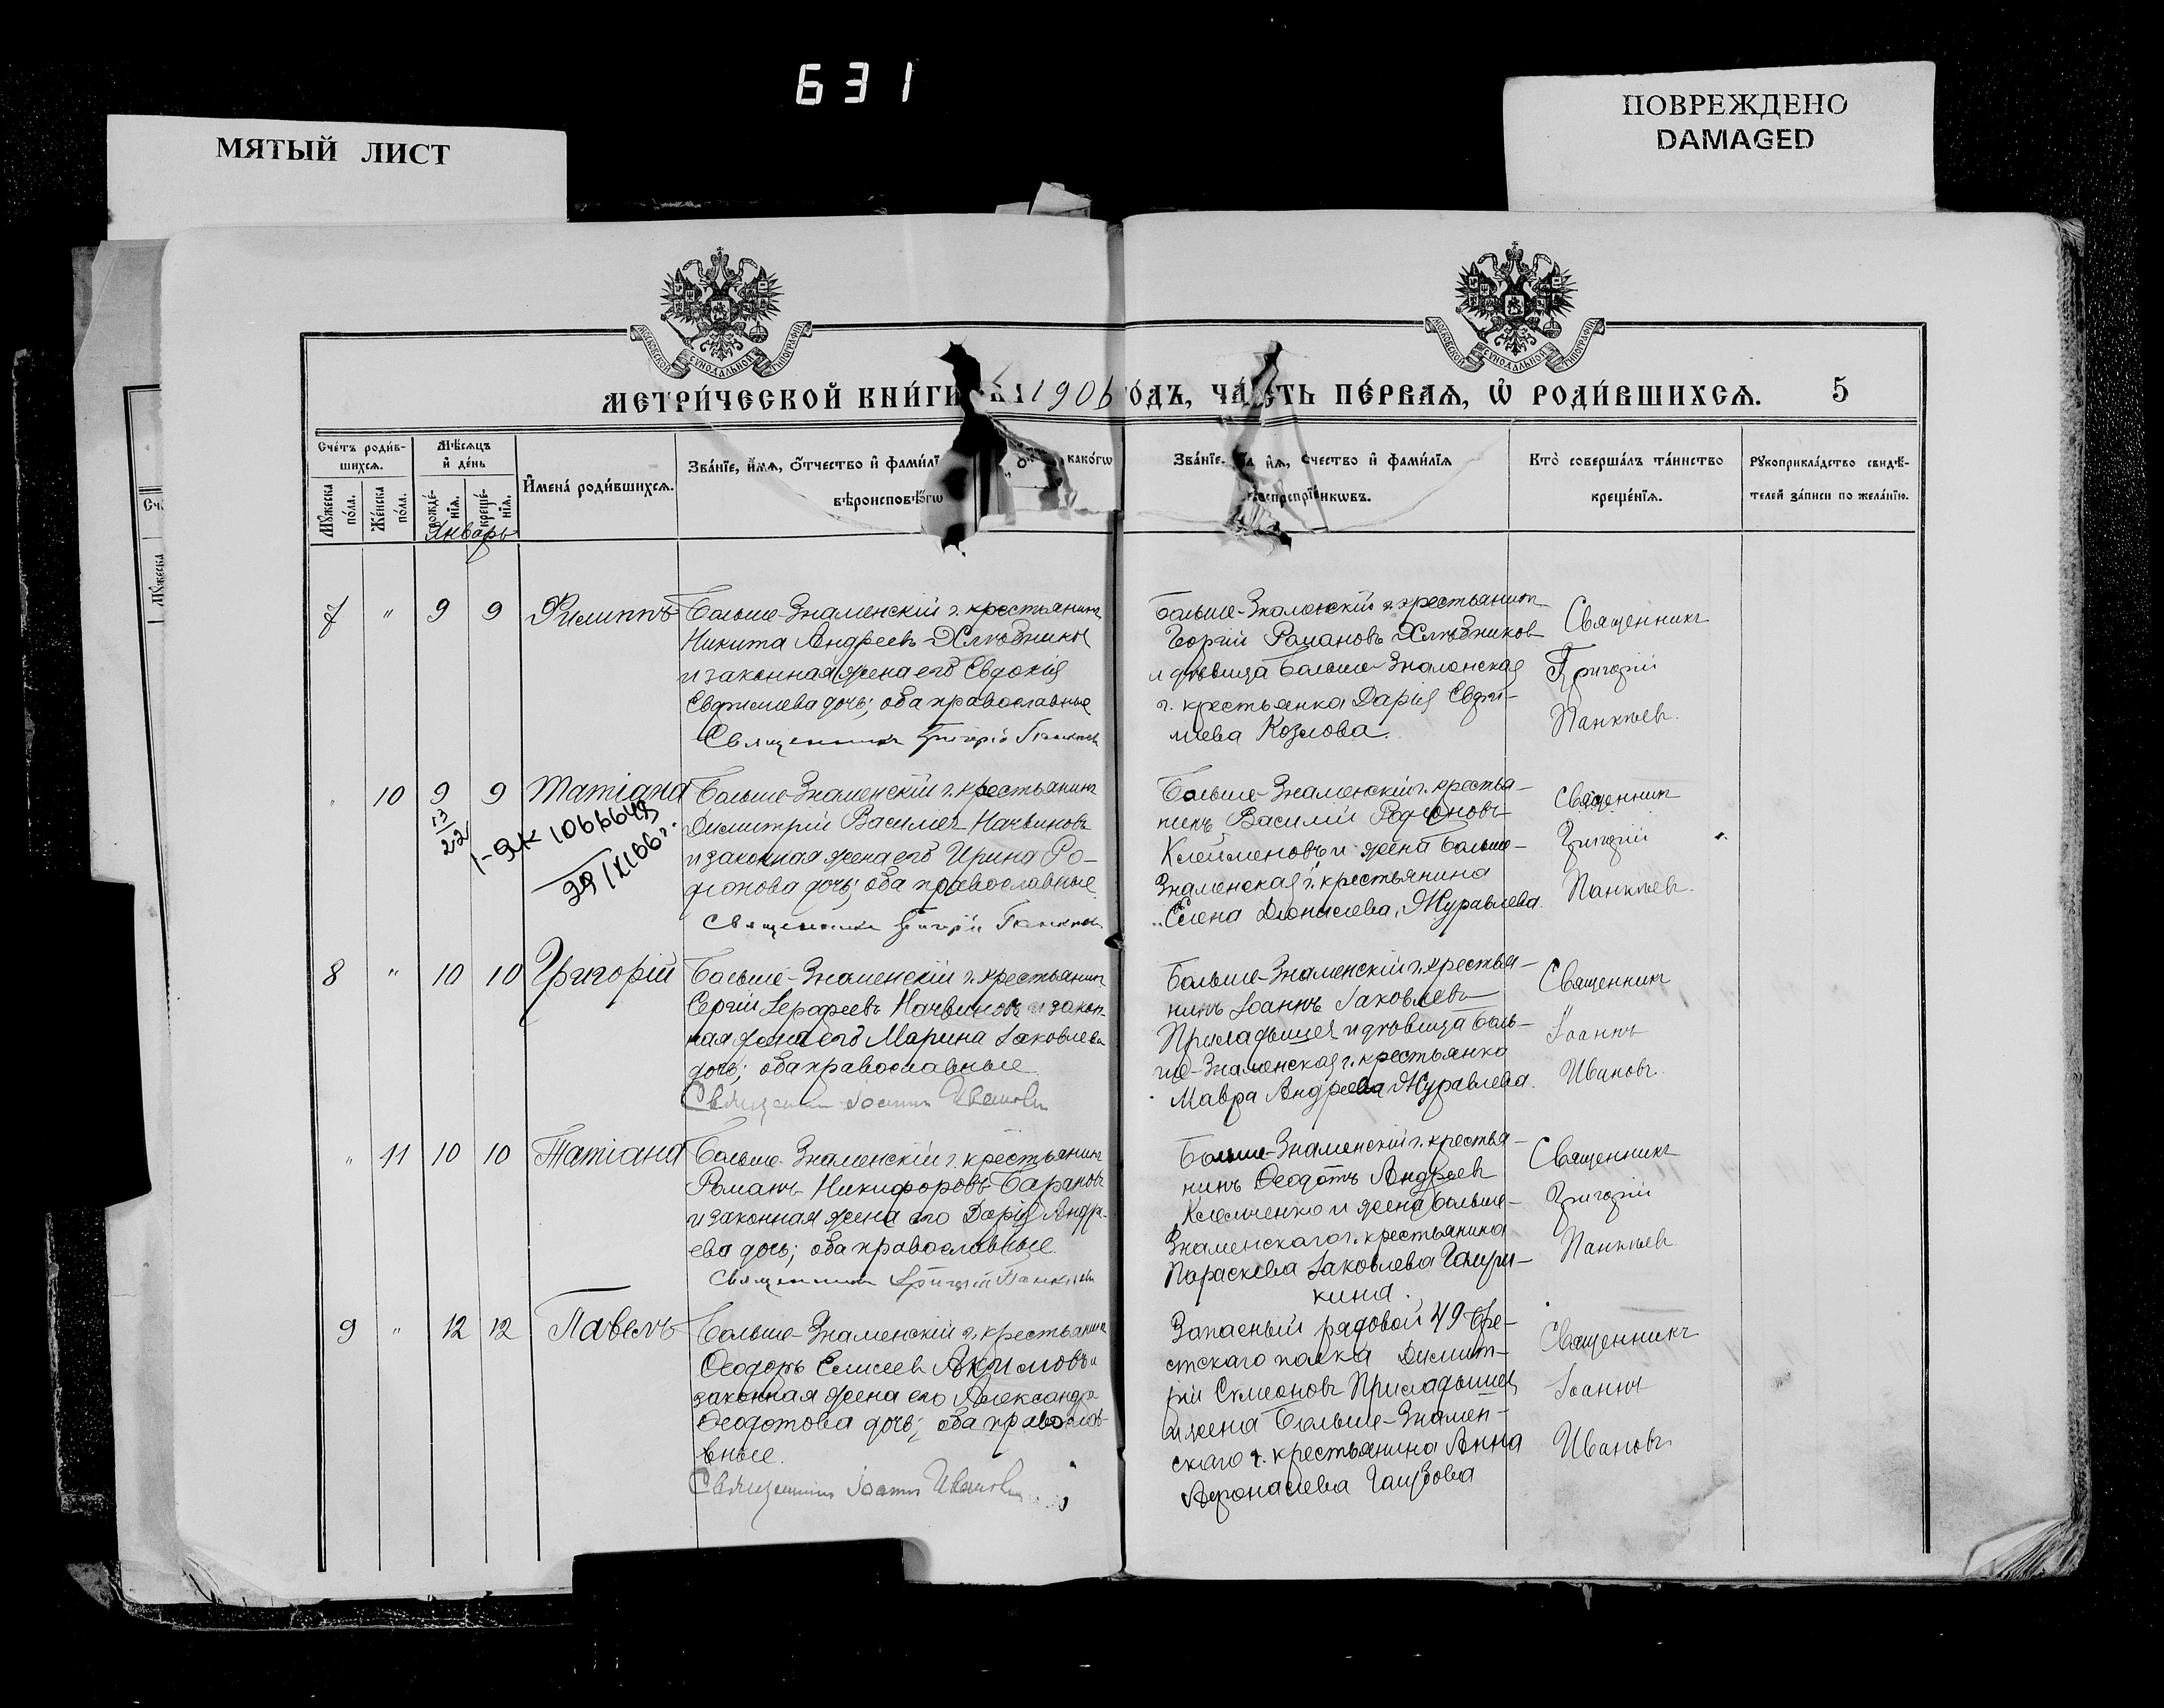 631
МЯТЫЙ ЛИСТ
ПОВРЕЖДЕНО
DAMAGED
МОСКОВСКОЙ СѴНОДАЛЬНОЙ ТИПОГРАФІИ
МОСКОВСКОЙ СѴНОДАЛЬНОЙ ТИПОГРАФІИ
МЕТРИ́ЧЕСКОЙ КНИ́ГИ 1906 ГО́ДЪ, ЧА́СТЬ ПЕ́РВАѦ, Ѡ҆ РОДИ́ВШИХСѦ. 5
Сче́тъ роди́в-
шихсѧ.
Мꙋ́жеска по́ла.
Же́нска по́ла.
Мѣ́сѧцъ
и҆ де́нь
рожде́-
нїѧ.
креще́-
нїѧ.
Январь
И҆мена̀ роди́вшихсѧ.
Зва́нїе, и҆́мѧ, ѻ҆́тчество и҆ фами́лїѧ како́гѡ
вѣроисповѣ́
Зва́нїе, и҆́мѧ, ѻ҆́чество и҆ фами́лїѧ
воспрїе́мникѡвъ.
Кто̀ соверша́лъ та́инство
креще́нїѧ.
Рꙋкоприкла́дство свидѣ́-
телей за́писи по жела́нїю.
7 " 9 9 Филиппъ
Больше-Знаменскій г. крестьянинъ
Никита Андреевъ Хлѣбников
и законная жена его Евдокія
Евфимиева дочь; оба православные
Священникъ Григорій Панкѣев
Больше-Знаменскій г. крестьянинъ
Георгій Романовъ Хлѣбников
и дѣвица Больше-Знаменская
г. крестьянка Дарія Евфи-
миева Козлова.
Священникъ
Григорій
Панкѣев.
" 10 9 9 Татіана
13/2-22
1-ЯК 1066649
29/XI66г.
Больше-Знаменскій г. крестьянинъ
Димитрій Васильев Начвиновъ
и законная жена его Ирина Ро-
діонова дочь; оба православные
Священникъ Григорій Панкѣев
Больше-Знаменскій г. крестья-
нинъ Василій Родіоновъ
Клейменовъ и жена Больше-
Знаменская г. крестьянина
Елена Діонисиева Журавлева.
Священникъ
Григорій
Панкѣевъ.
8 " 10 10 Григорій
Больше-Знаменскій г. крестьянинъ
Сергій Іерофеевъ Начвиновъ и закон-
ная жена его Марина Іаковлева
дочь; оба православные
Священникъ Іоаннъ Ивановъ
Больше-Знаменскій г. крестья-
нинъ Іоаннъ Іаковлевъ
Приладышев и дѣвица Боль-
ше-Знаменская г. крестьянка
Мавра Андреева Журавлева.
Священникъ
Іоаннъ
Ивановъ.
" 11 10 10 Татіана
Больше-Знаменскій г. крестьянинъ
Романъ Никифоровъ Баранов
и законная жена его Дарія Андре-
ева дочь; оба православные.
Священникъ Григорій Панкѣев
Больше-Знаменскій г. крестья-
нинъ Ѳеодотъ Андреев
Клеменко и жена больше-
Знаменского г. крестьянина
Параскева Іаковлева
кина.
Священникъ
Григорій
Панкѣев.
9 " 12 12 Павелъ
Больше-Знаменскій г. крестьянинъ
Ѳеодотъ Елисеев Акимовъ и
законная жена его Александра
Ѳеодотова дочь; оба православ-
вные.
Священникъ Іоаннъ Ивановъ
Запасный рядовой 49 Бре-
стскаго полка Димит-
рій Симеонов Приладышев
и жена Больше-Знамен-
скаго г. крестьянина Анна
Афонасиева
Священникъ
Іоаннъ
Ивановъ.